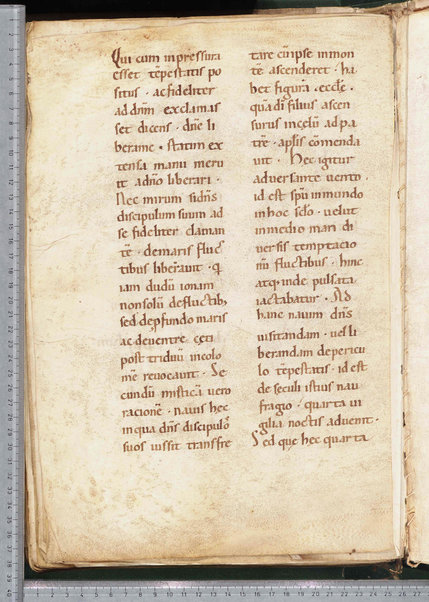 Qui cum in pressura
esset tēpestatis po
situs · ac fideliter
ad dn̄m exclamas
set dicens · dn̄e li
bera me · statim ex
tensa manu meru
it a dn̄o liberari ·
Nec mirum si dn̄s
discipulum suum ad
se fideliter claman
tē · de maris fluc
tibus liberauit · q
iam dudū ionam
non solū de fluctib;
sed de p̱fundo maris
ac de uentre ceti
post triduū incolo
mē reuocauit · Se
cundū misticā uero
racionē · nauis hec
in qua dn̄s discipulos
suos iussit transfre
tare cū ipse in mon
tē ascenderet · ha
bet figurā · eccłe ·
quā di filius ascen
surus in celū ad pa
trē · apłis cōmenda
uit · Hec igitur
aduersante uento ·
id est spū inmundo
in hoc scło · uelut
in medio mari di
uersis temptacio
nū fluctibus · hinc
atq; inde pulsata
iactabatur · Ad
hanc nauim dn̄s
uisitandam · uel li
berandam de pericu
lo tēpestatis · id est
de seculi istius nau
fragio · quarta ui
gilia noctis aduenit ·
Sed que hec quarta